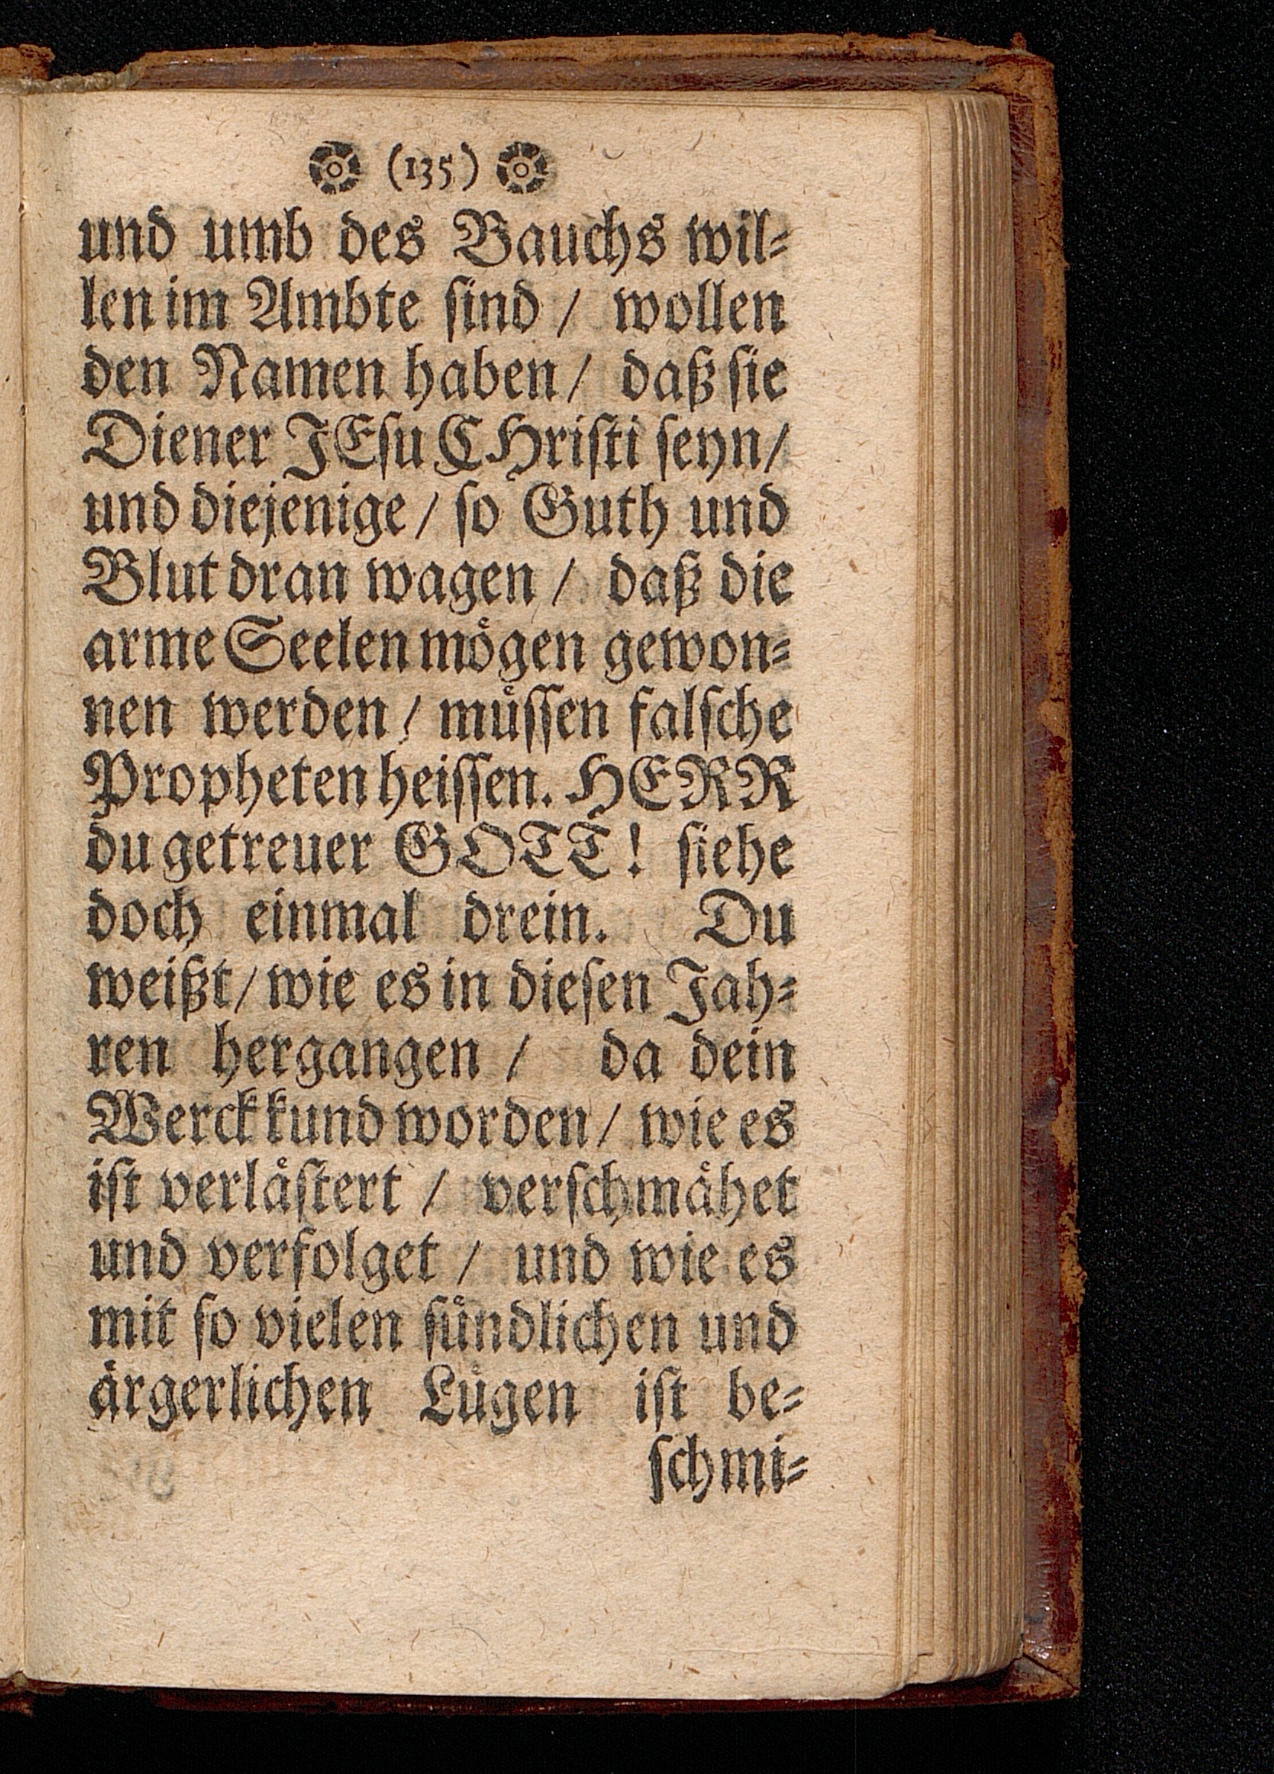 (135)
und umb des Bauchs wil⸗
len im Ambte sind / wollen
den Namen haben / daß sie
Diener JEsu CHristi seyn /
und diejenige / so Guth und
Blut dran wagen / daß die
arme Seelen mögen gewon⸗
nen werden / müssen falsche
Propheten heissen. HERR
du getreuer GOTT! siehe
doch einmal drein. Du
weißt / wie es in diesen Jah⸗
ren hergangen / da dein
Werck kund worden / wie es
ist verlästert / verschmähet
und verfolget / und wie es
mit so vielen sündlichen und
ärgerlichen Lügen ist be⸗
schmi⸗